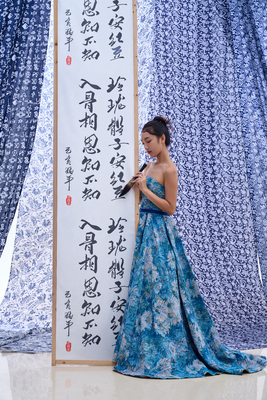 子安红豆
思知不知
玲珑骰子安红豆
入骨相思知不知
玲珑骰子安红
入骨相思知不知